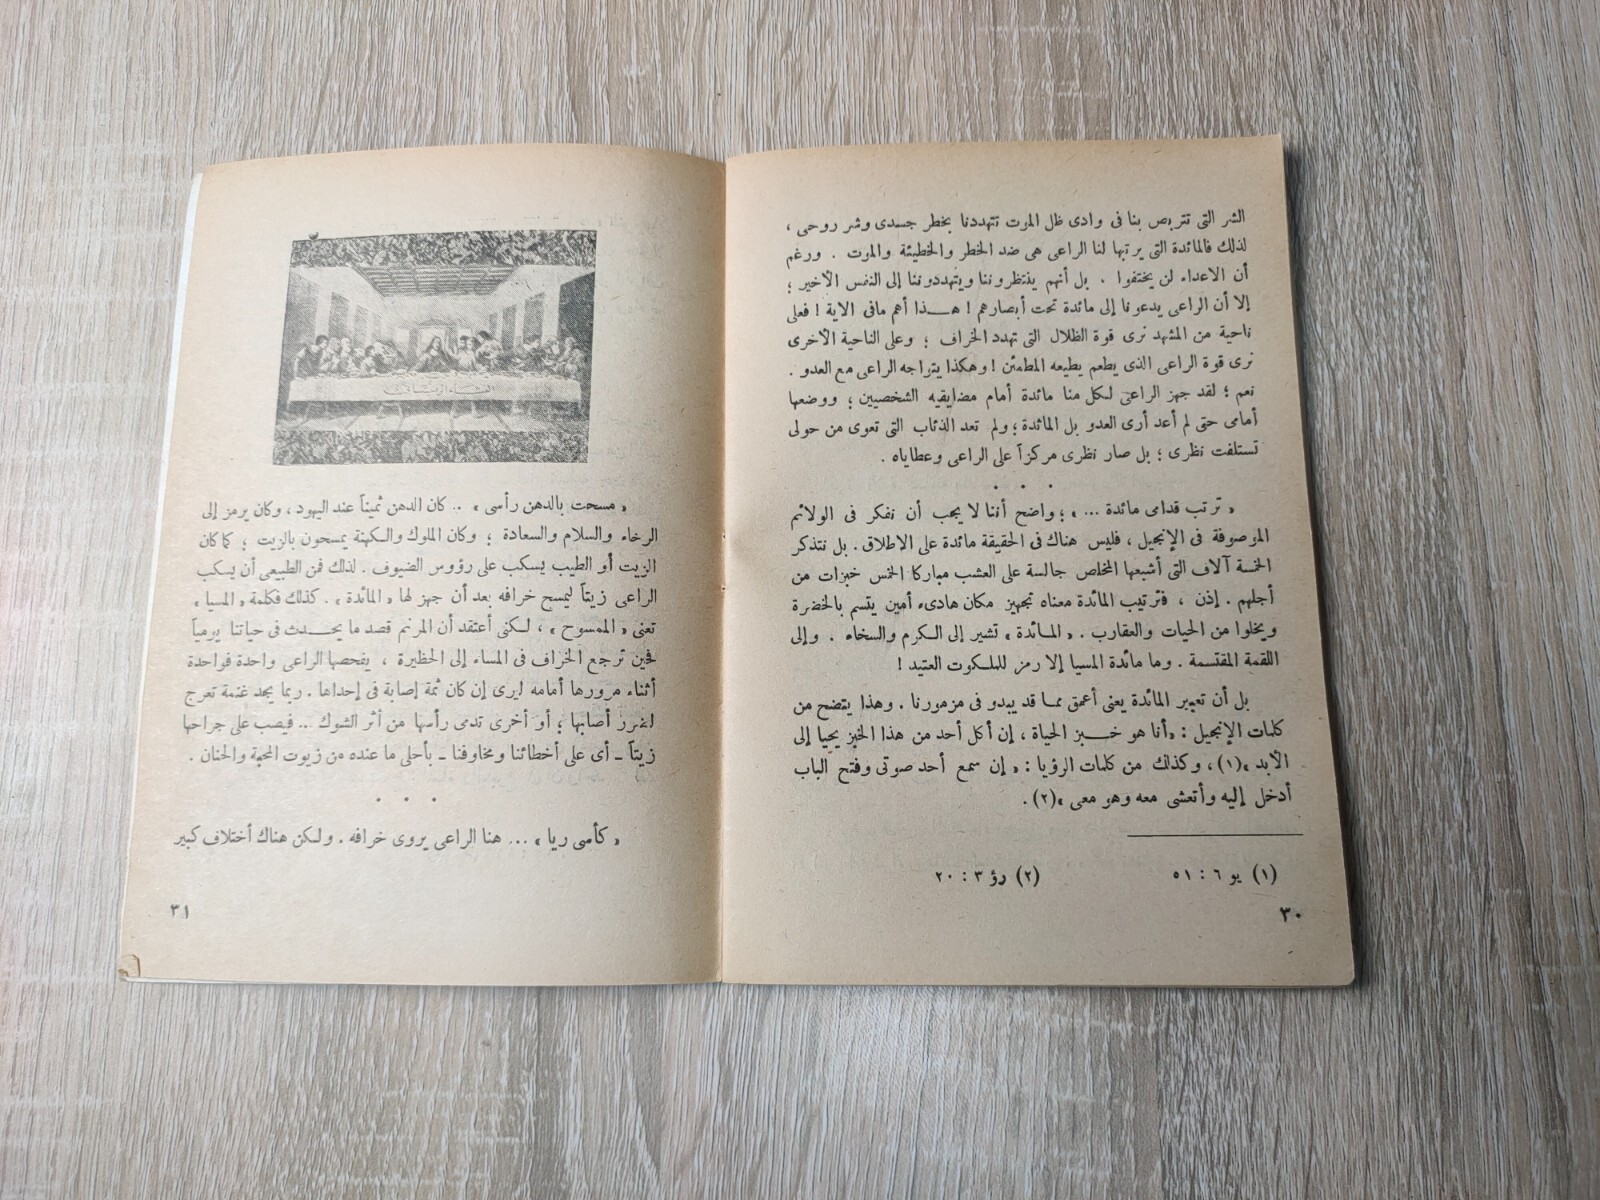 الشر التى تتربص بنا فى وادى ظل الموت تتهددنا بخطر جسدى وشر روحى ،
لذلك فالمائدة التى يرتبها لنا الراعى هى ضد الخطر والخطيئة والموت . ورغم
أن الاعداء لن يختفوا . بل أنهم ينتظروننا ويتهددوننا إلى النفس الأخير ؛
إلا أن الراعى يدعونا إلى مائدة تحت أبصارهم ! هـذا أهم مافى الاية ! فعلى
ناحية من المشهد نرى قوة الظلال التى تهدد الخراف ؛ وعلى الناحية الأخرى
نرى قوة الراعى الذى يطعم يطيعه المطمئن ! وهكذا يتراجه الراعى مع العدو .
نعم ؛ لقد جهز الراعى لكل منا مائدة أمام مضايقيه الشخصيين ؛ ووضعها
أمامى حتى لم أعد أرى العدو بل المائدة ؛ ولم تعد الذئاب التى تعوى من حولى
تستلفت نظرى ؛ بل صار نظرى مركزاً على الراعى وعطاياه .
. . .
« ترتب قدامى مائدة ... » ؛ واضح أننا لا يجب أن نفكر فى الولائم
الموصوفة فى الإنجيل ، فليس هناك فى الحقيقة مائدة على الاطلاق . بل نتذكر
الخمسة آلاف التى أشبعها المخلص جالسة على العشب مباركا الخمس خبزات من
أجلهم . إذن ، فترتيب المائدة معناه تجهيز مكان هادىء أمين يتسم بالخضرة
ويخلوا من الحيات والعقارب . « المائدة » تشير إلى الكرم والسخاء . وإلى
اللقمة المقتسمة . وما مائدة المسيا إلا رمز للملكوت العتيد !
بل أن تعبير المائدة يعنى أعمق مما قد يبدو فى مزمورنا . وهذا يتضح من
كلمات الإنجيل : « أنا هو خـبز الحياة ، إن أكل أحد من هذا الخبز يحيا إلى
الأبد » (١) ، وكذلك من كلمات الرؤيا : « إن سمع أحد صوتى وفتح الباب
أدخل إليه وأتعشى معه وهو معى » (٢) .
(١) يو ٦ : ٥١ (٢) رؤ ٣ : ٢٠
٣٠
« مسحت بالدهن رأسى » .. كان الدهن ثميناً عند اليهود ، وكان يرمز إلى
الرخاء والسلام والسعادة ؛ وكان الملوك والكهنة يمسحون بالزيت ؛ كما كان
الزيت أو الطيب يسكب على رؤوس الضيوف . لذلك فمن الطبيعى أن يسكب
الراعى زيتاً ليمسح خرافه بعد أن جهز لها « المائدة » . كذلك فكلمة « المسيا »
تعنى « الممسوح » ، لكنى أعتقد أن المرنم قصد ما يحـدث فى حياتنا يومياً
فحين ترجع الخراف فى المساء إلى الحظيرة ، يفحصها الراعى واحدة فواحدة
أثناء مرورها أمامه ليرى إن كان ثمة إصابة فى إحداها . ربما يجد غنمة تعرج
لغرز أصابها ؛ أو أخرى تدمى رأسها من أثر الشوك .. فيصب على جراحها
زيتاً ــ أى على أخطائنا ومخاوفنا ــ بأحلى ما عنده من زيوت المحبة والحنان .
. . .
« كأسى ريا » ... هنا الراعى يروى خرافه . ولكن هناك أختلاف كبير
٣١